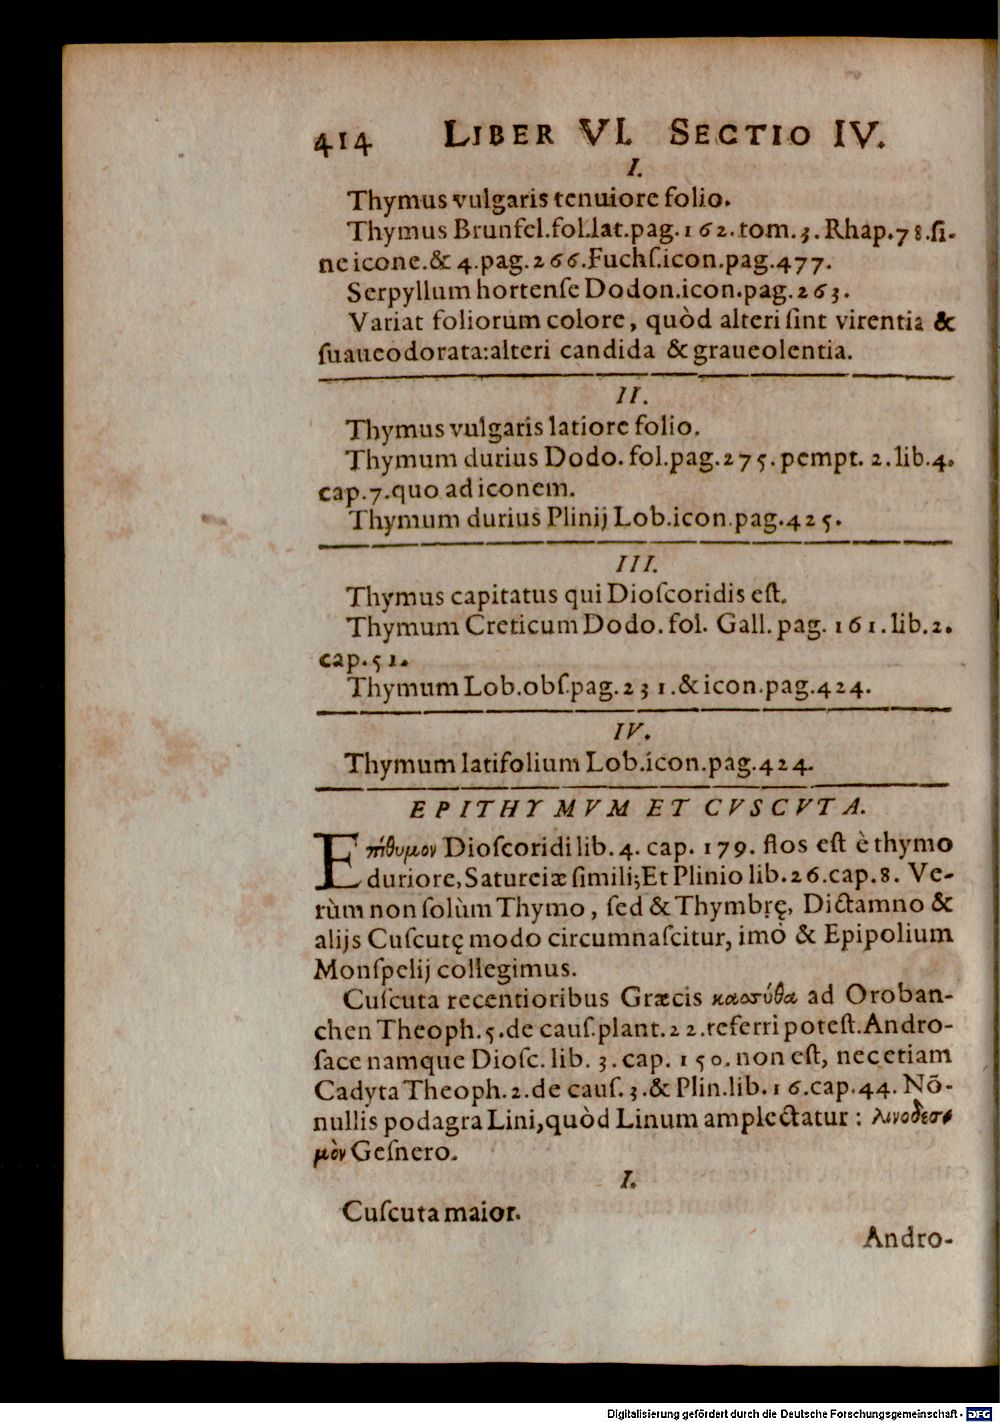 414 LIBER VI. SECTIO IV.
I.
Thymus vulgaris tenuiore folio.
Thymus Brunfel.fol.lat.pag.162.tom.3.Rhap.78.ſi-
ne icone.& 4.pag.266.Fuchſ.icon.pag.477.
Serpyllum hortenſe Dodon.icon.pag.263.
Variat foliorum colore, quòd alteri ſint virentia &
ſuaueodorata:alteri candida & graueolentia.
II.
Thymus vulgaris latiore folio.
Thymum durius Dodo. fol.pag.275.pempt. 2.lib.4.
cap.7.quo ad iconem.
Thymum durius Plinij Lob.icon.pag.425.
III.
Thymus capitatus qui Dioſcoridis eſt.
Thymum Creticum Dodo. fol. Gall. pag. 161.lib.2.
cap.51.
Thymum Lob.obſ.pag.231.& icon.pag.424.
IV.
Thymum latifolium Lob.icon.pag.424.
EPITHYMVM ET CVSCVTA.
Επίθυμον Dioſcoridi lib. 4. cap. 179. flos eſt è thymo
duriore, Satureiæ ſimili;Et Plinio lib.26.cap.8. Ve-
rùm non ſolùm Thymo, ſed & Thymbrę, Dictamno &
alijs Cuſcutę modo circumnaſcitur, imò & Epipolium
Monſpelij collegimus.
Cuſcuta recentioribus Græcis κασύθα ad Oroban-
chen Theoph.5.de cauſ.plant.22.referri poteſt.Andro-
ſace namque Dioſc. lib. 3. cap. 150. non eſt, nec etiam
Cadyta Theoph.2.de cauſ.3.& Plin.lib.16.cap.44. Nō-
nullis podagra Lini,quòd Linum amplectatur : λινοδεσ-
μὸν Geſnero.
I.
Cuſcuta maior.
Andro-
Digitalisierung gefördert durch die Deutsche Forschungsgemeinschaft - DFG